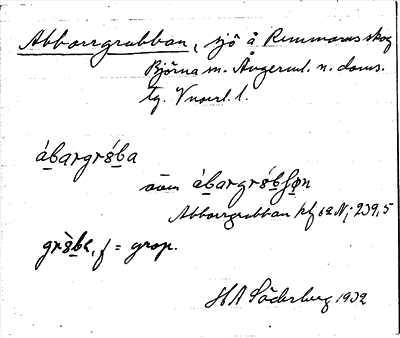 Abborrgrubban, sjö å Remmarns skog
Björna sn. Ångerml. n. doms.
tg. Vnorrl. l.
ábargróba
även ábargróbſøn
Abborrgrubban kbl 62 Nj 239,5
gròba, f = grop.
H A Söderberg 1932